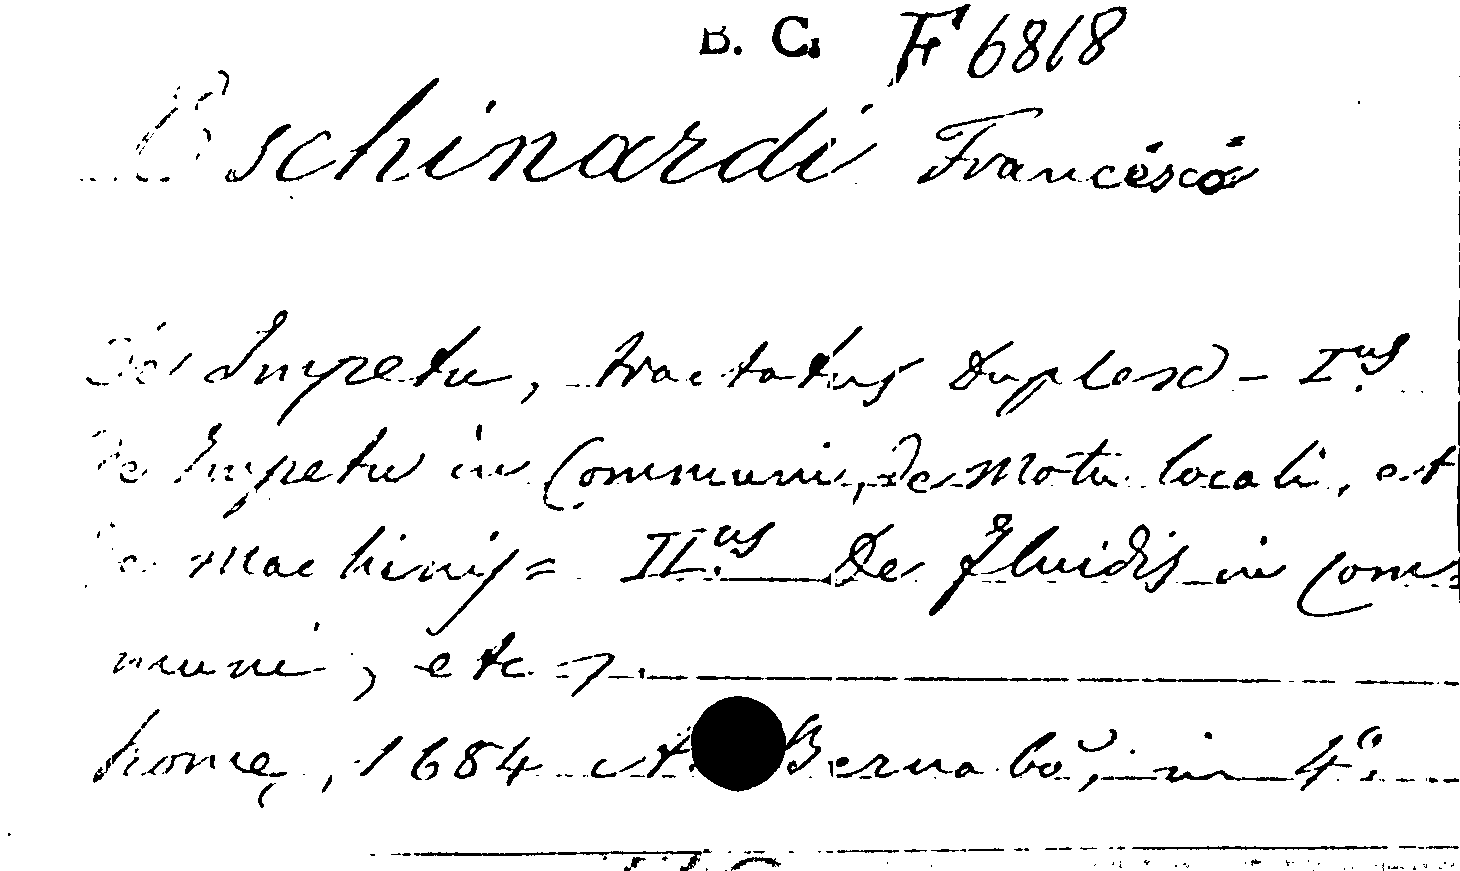 B. C. F 6818
Eschinardi Francesco
De Impetu, tractatus Duplex - I.us
De Impetu in Communi, De Motu locali, et
De Machinis = II.us De Fluidis in Com=
muni, etc =.
Romę, 1684 A. Bernabò, in 4.o